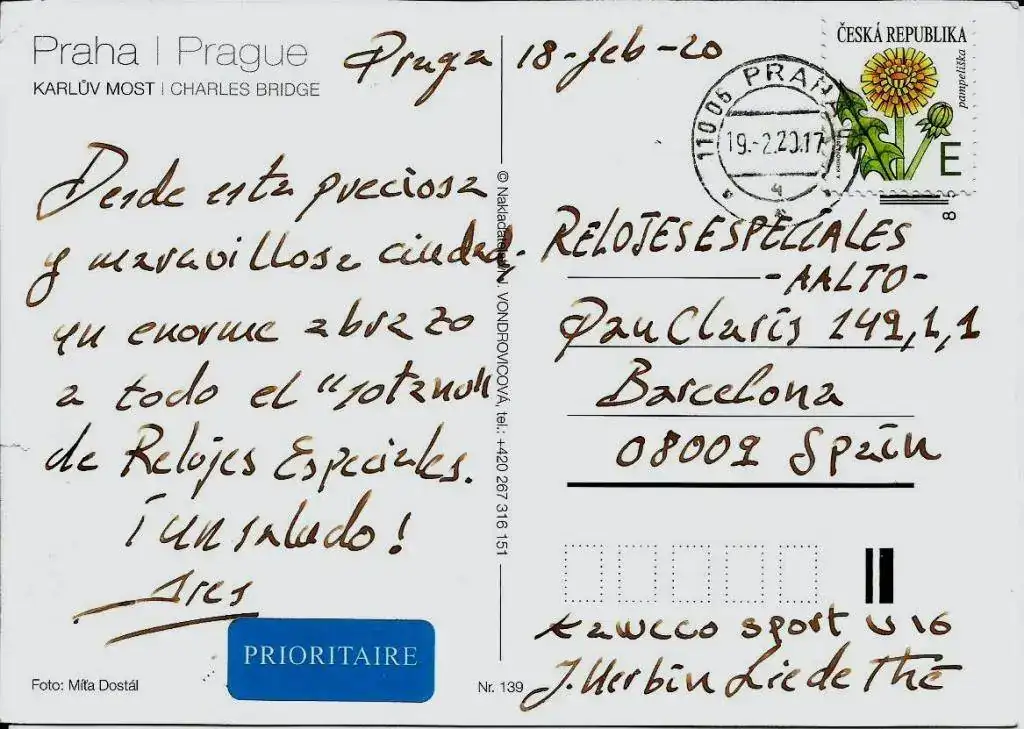 Praha | Prague
KARLŮV MOST | CHARLES BRIDGE
Praga 18-feb-20
Desde esta preciosa
y maravillosa ciudad.
un enorme abrazo
a todo el "sotano"
de Relojes Especiales.
¡Un saludo!
Ares
PRIORITAIRE
Foto: Míťa Dostál
© Nakladatel: N. VONDROVICOVÁ, tel.: +420 267 316 151
Nr. 139
ČESKÁ REPUBLIKA
pampeliška
E
110 06 PRAHA
19.-2.20.17
4
8
RELOJES ESPECIALES
-AALTO-
Pau Claris 149, 1, 1
Barcelona
08009 Spain
Kaweco sport
J. Herbin Lie de Thé